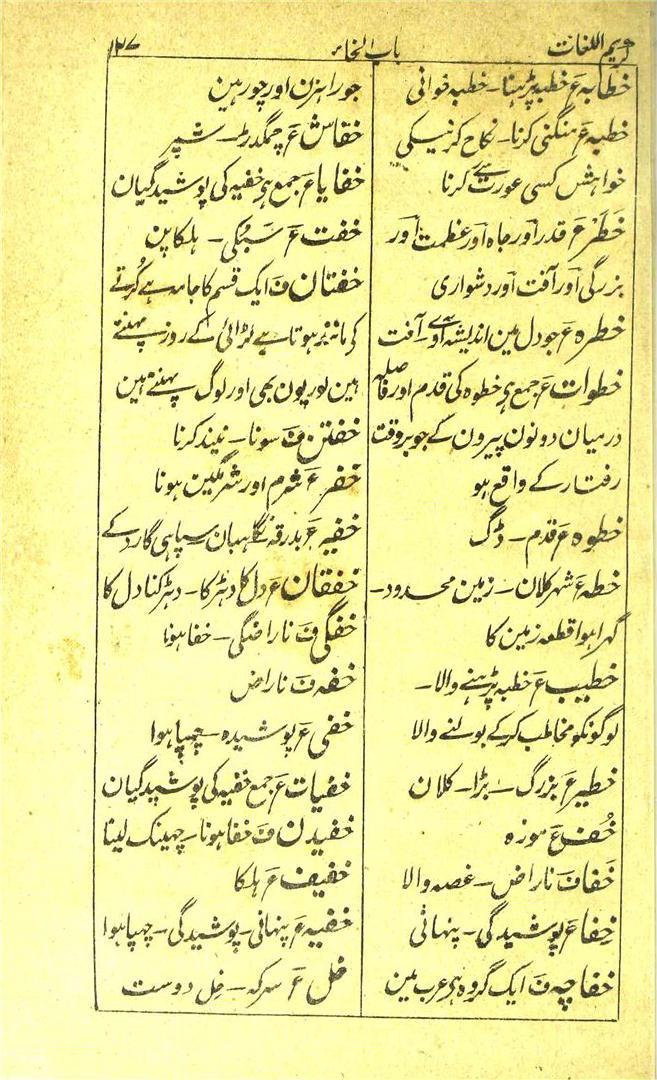 کریم اللغات
باب الخاء
١٢٧
خطابہ ع خطبہ پڑہنا۔ خطبہ خوانی
خطبہ ع منگنی کرنا۔ نکاح کرنیکی
خواہش کسی عورت سے کرنا
خطر ع قدر اور جاہ اور عظمت اور
بزرگی اور آفت اور دشواری
خطرہ ع جو دل مین اندیشہ آوے۔ آفت
خطوات ع جمع ہی خطوہ کی قدم اور فاصلہ
درمیان دونون پیرون کے جو بروقت
رفتار کے واقع ہو
خطوہ ع قدم۔ ڈگ
خطہ ع شہر کلان۔ زمین محدود۔
گہرا ہوا قطعہ زمین کا
خطیب ع خطبہ پڑہنے والا۔
لوگونکو مخاطب کرکے بولنے والا
خطیر ع بزرگ۔ بڑا۔ کلان
خُف ع موزہ
خفا ف ناراض۔ غصہ والا
خِفا ع پوشیدگی۔ پنہانی
خفاچہ ف ایک گروہ ہی عرب مین
جو راہزن اور چور ہین
خفاش ع چمگدڑ۔ شپر
خفایا ع جمع ہی خفیہ کی پوشیدگیان
خفت ع سبکی۔ ہلکاپن
خفتان ف ایک قسم کا جامہ ہے کُرتے
کی مانند ہوتا ہے لڑائی کے روز پہنتے
ہین اور یون بھی اور لوگ پہنتے ہین
خفتن ف سونا۔ نیند کرنا
خفر ع شرم اور شرمگین ہونا
ع بدرقہ نگاہبان۔ سپاہی گارد کے
خفقان ع دل کا دہڑکا۔ دہڑکنا دل کا
خفگی ف ناراضگی۔ خفا ہونا
خفہ ف ناراض
خفی ع پوشیدہ۔ چھپا ہوا
خفیات ع جمع خفیہ کی پوشیدگیان
خفیدن ف خفا ہونا۔ چہینک لینا
خفیف ع ہلکا
خفیہ ع پنہانی۔ پوشیدگی۔ چھپا ہوا
خل ع سرکہ۔ خِل دوست